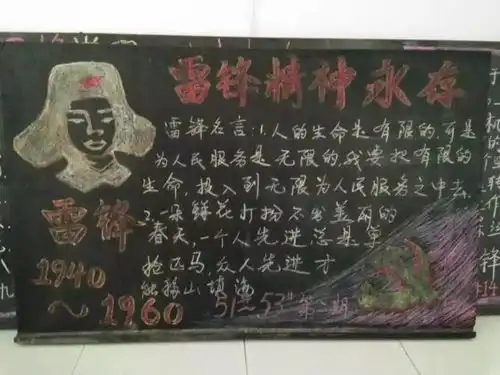 雷锋精神永存
雷锋名言:1.人的生命是有限的,可是
为人民服务是无限的,我要把有限的
生命,投入到无限为人民服务之中去。
2.一朵鲜花打扮不出美丽的
春天,一个人先进总是单
枪匹马,众人先进才
能移山填海
雷锋
1940
～1960
51~53# 第一期